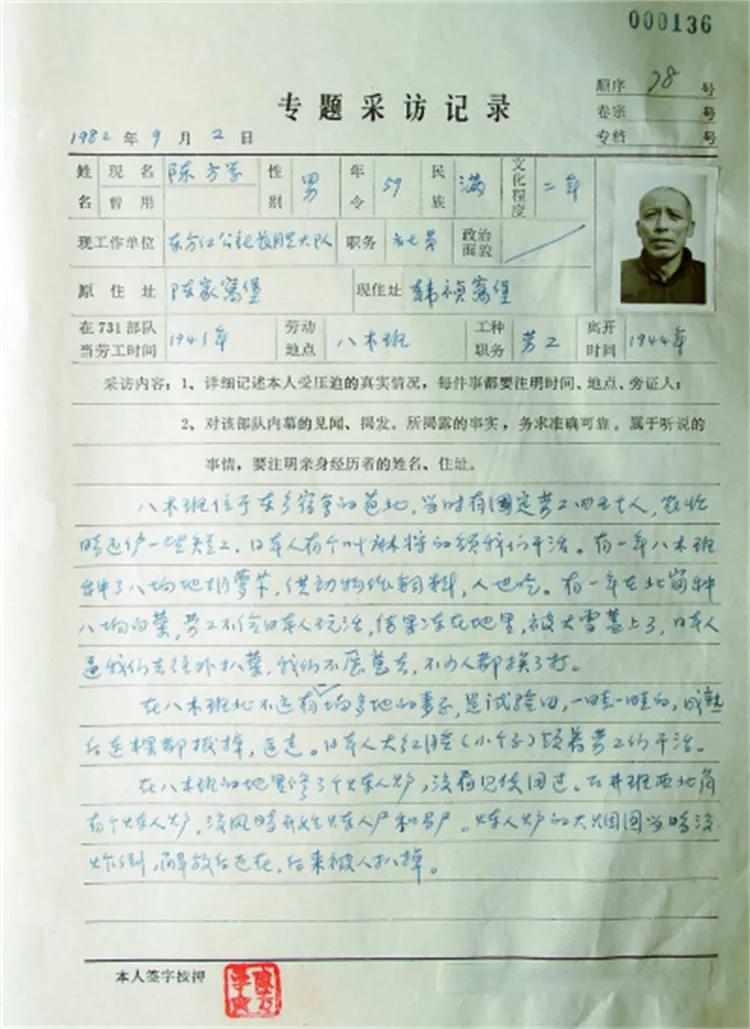 000136
顺序 78 号
专题采访记录
卷宗 号
1982年9月2日
专档 号
姓名 现名 陈方学 性别 男 年令 59 民族 满 文化程度 二年
曾用
现工作单位 东方红公社 大队 职务 政治面貌
原住址 陈家窝堡 现住址 韩祯窝堡
在731部队当劳工时间 1941年 劳动地点 八木班 工种职务 劳工 离开时间 1944年
采访内容：1、详细记述本人受压迫的真实情况，每件事都要注明时间、地点、旁证人；
2、对该部队内幕的见闻、揭发。所揭露的事实，务求准确可靠。属于听说的
事情，要注明亲身经历者的姓名、住址。
八木班位于东乡宿舍的道北，当时有固定劳工四五十人，农忙
时还 一些短工，日本人有个叫 的领我们干活。有一年八木班
种了八垧地胡萝卜，供动物作饲料，人也吃。有一年在北岗种
八垧白菜，劳工不给日本人玩活，结果冻在地里，被大雪盖上了，日本人
逼我们去往外扒菜，我们不愿意去，不少人都挨了打。
在八木班北不远有 垧多地的 子，是试验田，一畦一畦的，成熟
后连棵都拔掉，运走。日本人大红脸（小个子）领着劳工们干活。
在八木班的地里修了个炼人炉，没有记使用过。石井班西北角
有个炼人炉，没风时开始炼人尸和 尸。炼人炉的大烟囱当时没
炸倒，解放后还在，后来被人扒掉。
本人签字按押